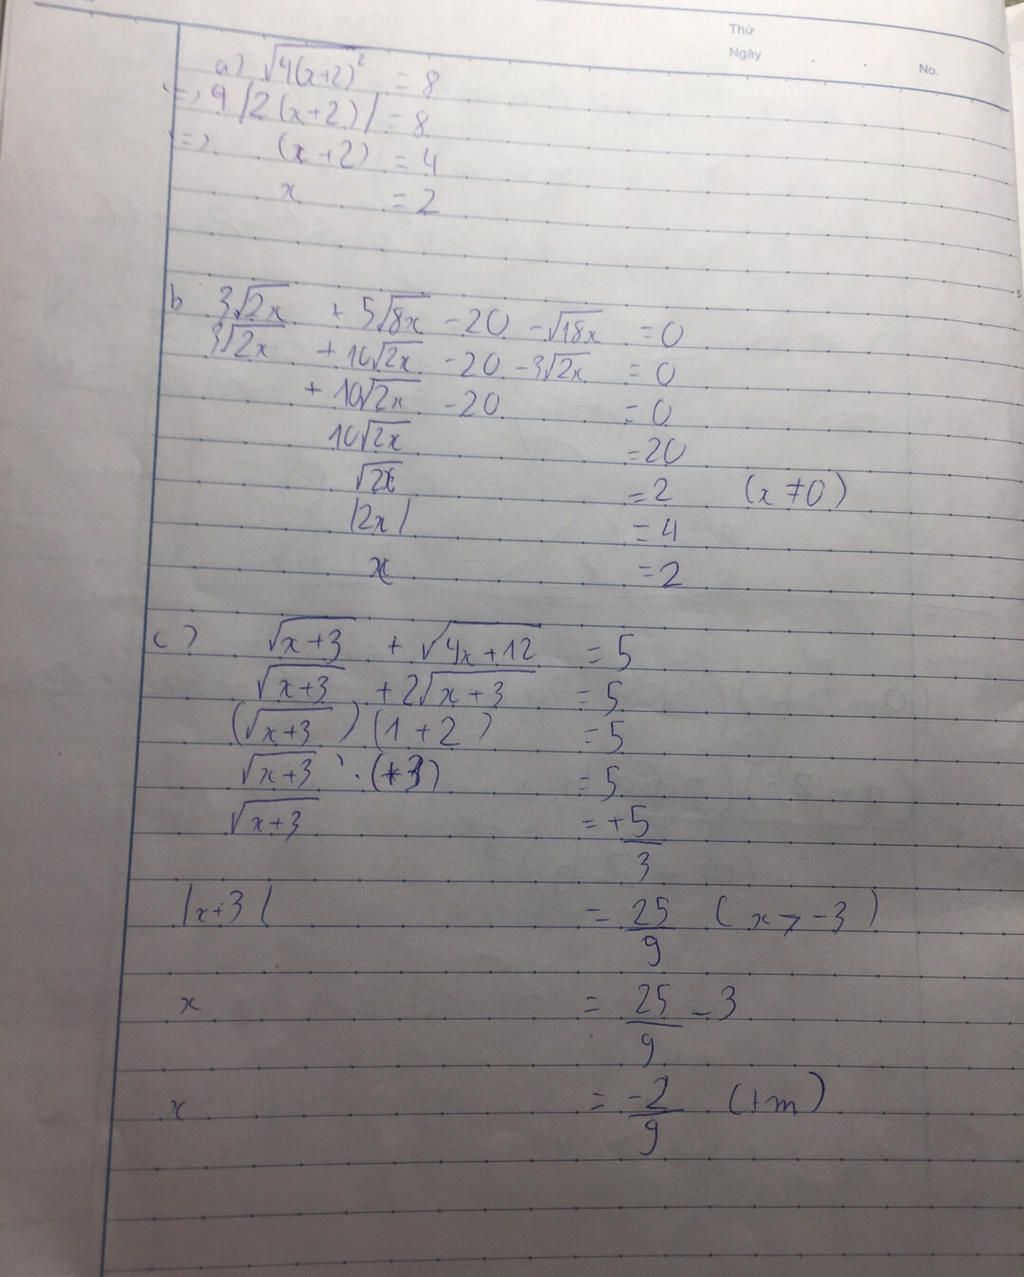 Thứ
Ngày
No.
a) √4(x+2)² = 8
=> 9 |2(x+2)| = 8
=> (x+2) = 4
x = 2
b 3√2x + 5√8x - 20 - √18x = 0
3√2x + 10√2x - 20 - 3√2x = 0
+ 10√2x - 20 = 0
10√2x = 20
√2x = 2 (x ≠ 0)
|2x| = 4
x = 2
c) √x+3 + √4x+12 = 5
√x+3 + 2√x+3 = 5
(√x+3) (1+2) = 5
√x+3 . (+3) = 5
√x+3 = +5/3
|x+3| = 25/9 (x > -3)
x = 25/9 - 3
x = -2/9 (tm)